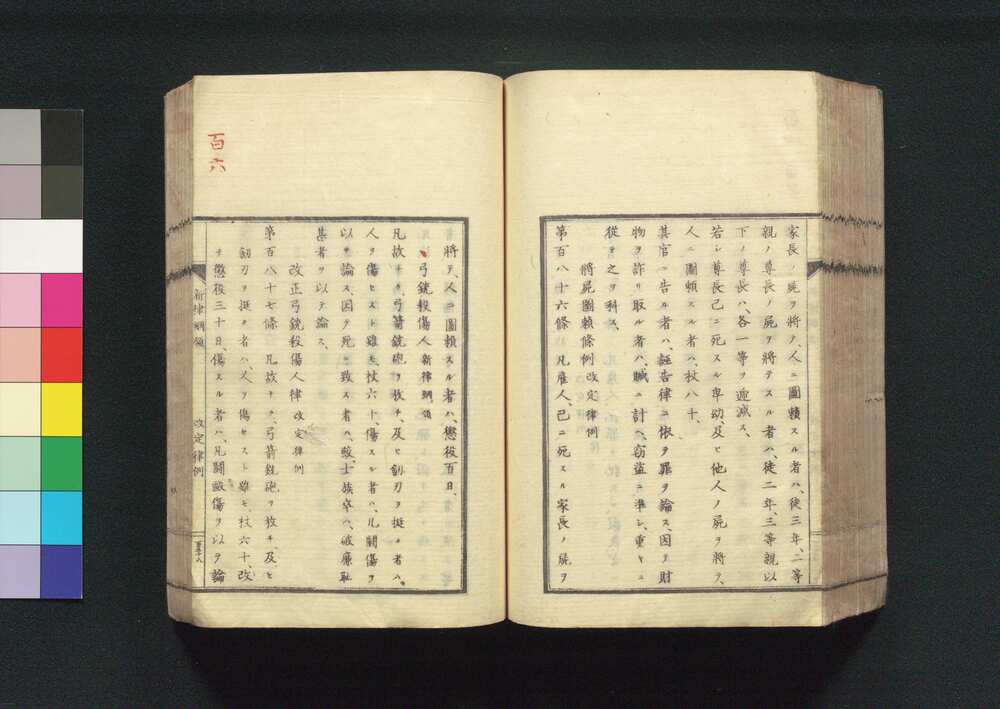 家長ノ屍ヲ將テ、人ニ圖頼スル者ハ、徒三年、二等
親ノ尊長ノ屍ヲ將テスル者ハ、徒二年、三等親以
下ノ尊長ハ、各一等ヲ逓減ス、
若シ尊長已ニ死スル卑幼、及ヒ他人ノ屍ヲ將テ、
人ニ圖頼スル者ハ、杖八十、
其官ニ告ル者ハ、誣告律ニ依テ罪ヲ論ス、因テ財
物ヲ詐リ取ル者ハ、贓ニ計ヘ、窃盗ニ準シ、重キニ
從テ之ヲ科ス、
將屍圖頼條例 改定律例
第百八十六條 凡雇人、已ニ死スル家長ノ屍ヲ
百六
將テ、人ニ圖頼スル者ハ、懲役百日、
弓銃殺傷人 新律綱領
凡故ナク、弓箭銃砲ヲ放チ、及ヒ劒刃ヲ挺ル者ハ、
人ヲ傷ヒスト雖モ、杖六十、傷スル者ハ、凡鬪傷ヲ
以テ論ス、因テ死ニ致ス者ハ、絞、士族卒ハ、破廉耻
甚者ヲ以テ論ス、
改正弓銃殺傷人律 改定律例
第百八十七條 凡故ナク、弓箭銃砲ヲ放チ及ヒ
劒刃ヲ挺ク者ハ、人ヲ傷セスト雖モ、杖六十、改
テ懲役三十日、傷スル者ハ、凡鬪毆傷ヲ以テ論
新律綱領 改定律例